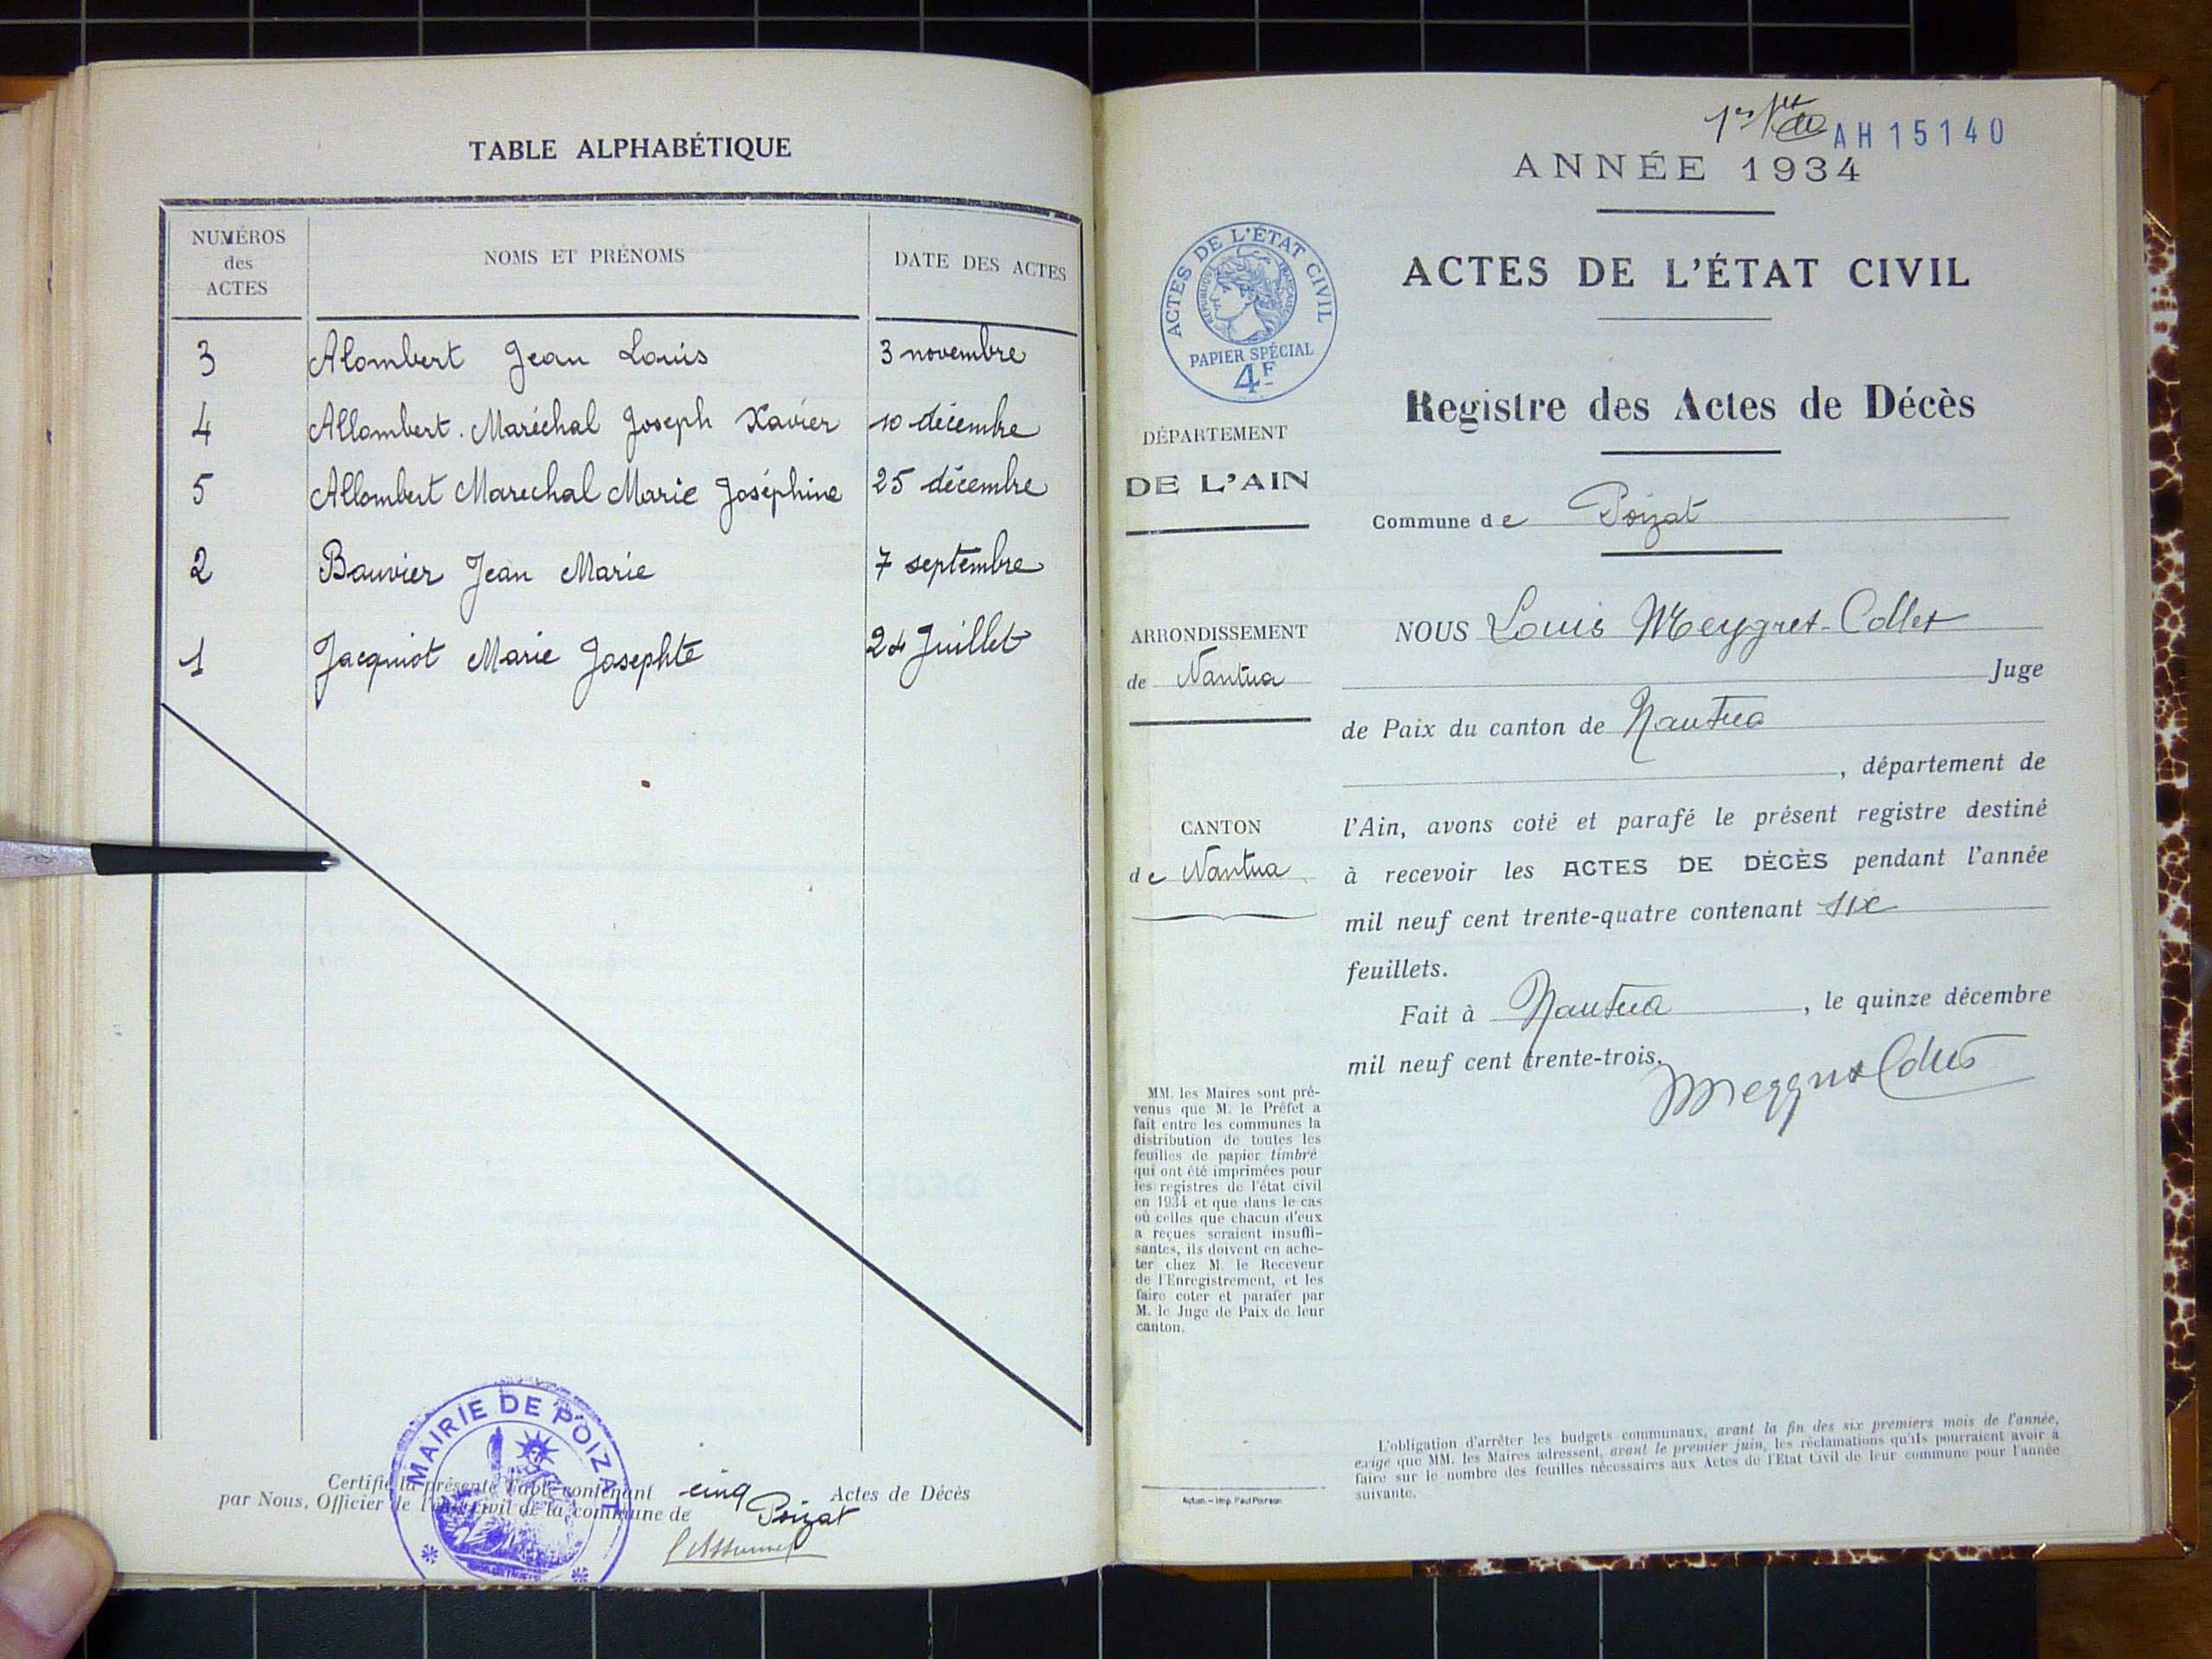 TABLE ALPHABÉTIQUE
NUMÉROS des ACTES NOMS ET PRÉNOMS DATE DES ACTES
3 Alombert Jean Louis 3 novembre
4 Allombert. Maréchal Joseph Xavier 10 décembre
5 Allombert Marechal Marie Joséphine 25 décembre
2 Bouvier Jean Marie 7 septembre
1 Jacquiot Marie Josephte 24 Juillet
MAIRIE DE POIZAT
Certifié la présente Table contenant cinq Actes de Décès
par Nous, Officier de l'état civil de la commune de Poizat
AH15140
ANNÉE 1934
ACTES DE L'ÉTAT CIVIL
Registre des Actes de Décès
Commune de Poizat
NOUS Louis Meygret-Collet
Juge
de Paix du canton de Nantua
, département de
l'Ain, avons coté et parafé le présent registre destiné
à recevoir les ACTES DE DÉCÈS pendant l'année
mil neuf cent trente-quatre contenant six
feuillets.
Fait à Nantua, le quinze décembre
mil neuf cent trente-trois.
Meygret Collet
ACTES DE L'ÉTAT CIVIL
RÉPUBLIQUE FRANÇAISE
PAPIER SPÉCIAL
4F
DÉPARTEMENT
DE L'AIN
ARRONDISSEMENT
de Nantua
CANTON
de Nantua
MM. les Maires sont pré-
venus que M. le Préfet a
fait entre les communes la
distribution de toutes les
feuilles de papier timbré
qui ont été imprimées pour
les registres de l'état civil
en 1934 et que dans le cas
où celles que chacun d'eux
a reçues seraient insuffi-
santes, ils doivent en ache-
ter chez M. le Receveur
de l'Enregistrement, et les
faire coter et parafer par
M. le Juge de Paix de leur
canton.
Autun. - Imp. Paul Poirson
L'obligation d'arrêter les budgets communaux, avant la fin des six premiers mois de l'année,
exige que MM. les Maires adressent, avant le premier juin, les réclamations qu'ils pourraient avoir à
faire sur le nombre des feuilles nécessaires aux Actes de l'Etat Civil de leur commune pour l'année
suivante.